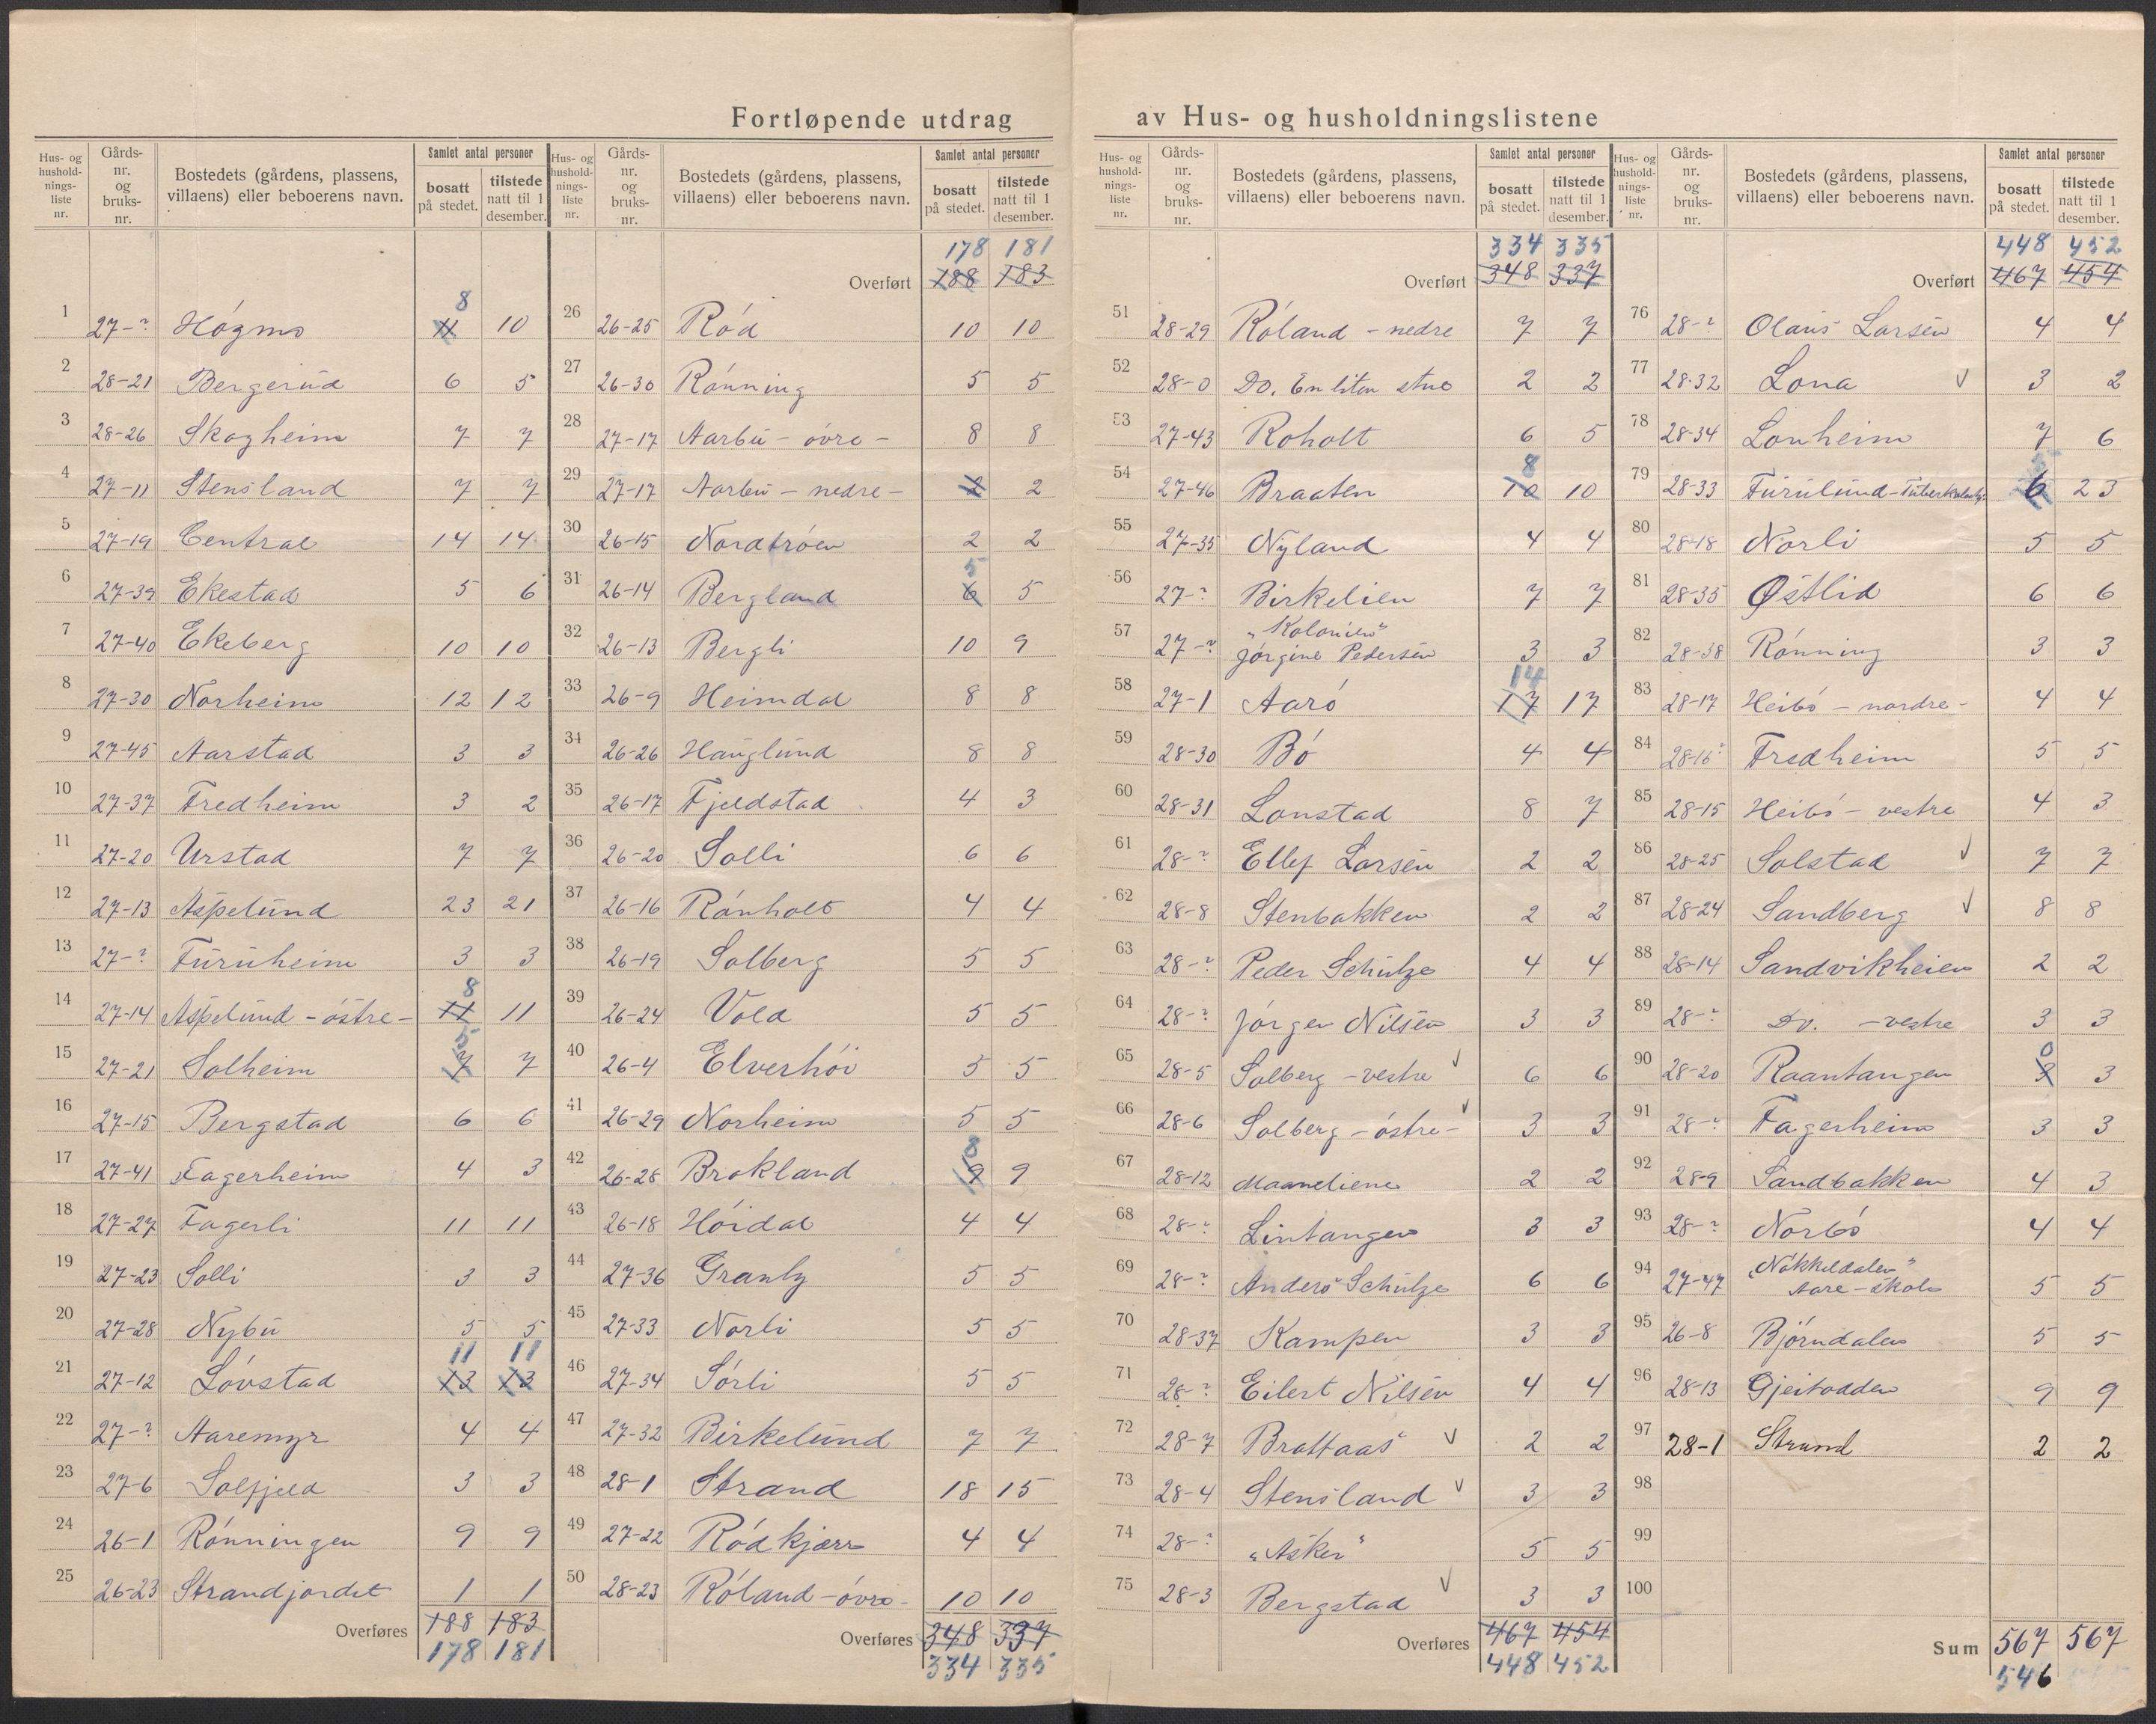 Fortløpende utdrag av Hus- og husholdningslistene
Hus- og husholdningsliste nr. | Gårdsnr. og bruksnr. | Bostedets (gårdens, plassens, villaens) eller beboerens navn. | Samlet antal personer | bosatt på stedet. | tilstede natt til 1 desember.
1 27-? Høgmo 11 8 10
2 28-21 Bergerud 6 5
3 28-26 Skogheim 7 7
4 27-11 Stensland 7 7
5 27-19 Central 14 14
6 27-39 Ekestad 5 6
7 27-40 Ekeberg 10 10
8 27-30 Norheim 12 12
9 27-45 Aarstad 3 3
10 27-37 Fredheim 3 2
11 27-20 Urstad 7 7
12 27-13 Aspelund 23 21
13 27-? Furuheim 3 3
14 27-14 Aspelund - østre - 11 8 11
15 27-21 Solheim 7 5 7
16 27-15 Bergstad 6 6
17 27-41 Fagerheim 4 3
18 27-27 Fagerli 11 11
19 27-23 Solli 3 3
20 27-28 Nybu 5 5
21 27-12 Løvstad 13 11 13 11
22 27-? Aaremyr 4 4
23 27-6 Solfjeld 3 3
24 26-1 Rønningen 9 9
25 26-23 Strandjordet 1 1
Overføres 188 183
178 181
Hus- og husholdningsliste nr. | Gårdsnr. og bruksnr. | Bostedets (gårdens, plassens, villaens) eller beboerens navn. | Samlet antal personer | bosatt på stedet. | tilstede natt til 1 desember.
178 181
Overført 188 183
26 26-25 Rød 10 10
27 26-30 Rønning 5 5
28 27-17 Aarbu - øvre - 8 8
29 27-17 Aarbu - nedre - 2 2
30 26-15 Nordtrøen 2 2
31 26-14 Bergland 6 5 5
32 26-13 Bergli 10 9
33 26-9 Heimdal 8 8
34 26-26 Hauglund 8 8
35 26-17 Fjeldstad 4 3
36 26-20 Solli 6 6
37 26-16 Rønholt 4 4
38 26-19 Solberg 5 5
39 26-24 Vold 5 5
40 26-4 Elverhøi 5 5
41 26-29 Norheim 5 5
42 26-28 Brokland 9 8 9
43 26-18 Høidal 4 4
44 27-36 Granly 5 5
45 27-33 Norli 5 5
46 27-34 Sørli 5 5
47 27-32 Birkelund 7 7
48 28-1 Strand 18 15
49 27-22 Rødkjærr 4 4
50 28-23 Røland - øvre - 10 10
Overføres 348 337
334 335
Hus- og husholdningsliste nr. | Gårdsnr. og bruksnr. | Bostedets (gårdens, plassens, villaens) eller beboerens navn. | Samlet antal personer | bosatt på stedet. | tilstede natt til 1 desember.
334 335
Overført 348 337
51 28-29 Røland - nedre 7 7
52 28-0 Do. En liten stue 2 2
53 27-43 Roholt 6 5
54 27-46 Braaten 10 8 10
55 27-35 Nyland 4 4
56 27-? Birkelien 7 7
57 27-? "Kolonien" Jørgine Pedersen 3 3
58 27-1 Aarø 17 14 17
59 28-30 Bø 4 4
60 28-31 Lonstad 8 7
61 28-? Ellef Larsen 2 2
62 28-8 Stenbakken 2 2
63 28-? Peder Schulze 4 4
64 28-? Jørgen Nilsen 3 3
65 28-5 Solberg - vestre √ 6 6
66 28-6 Solberg - østre - √ 3 3
67 28-12 Maaneliene 2 2
68 28-? Lintangen 3 3
69 28-? Anders Schulze 6 6
70 28-37 Kampen 3 3
71 28-? Eilert Nilsen 4 4
72 28-7 Brattaas √ 2 2
73 28-4 Stensland √ 3 3
74 28-? "Asker" 5 5
75 28-3 Bergstad √ 3 3
Overføres 467 454
448 452
Hus- og husholdningsliste nr. | Gårdsnr. og bruksnr. | Bostedets (gårdens, plassens, villaens) eller beboerens navn. | Samlet antal personer | bosatt på stedet. | tilstede natt til 1 desember.
448 452
Overført 467 454
76 28-? Olaus Larsen 4 4
77 28-32 Lona √ 3 2
78 28-34 Lonheim 7 6
79 28-33 Furulund - 6 23
80 28-18 Norli 5 5
81 28-35 Østlid 6 6
82 28-38 Rønning 3 3
83 28-17 Heibø - nordre - 4 4
84 28-16 Fredheim 5 5
85 28-15 Heibø - vestre 4 3
86 28-25 Solstad √ 7 7
87 28-24 Sandberg √ 8 8
88 28-14 Sandvikheien 2 2
89 28-? Do. - vestre 3 3
90 28-20 Raantangen 3 0 3
91 28-? Fagerheim 3 3
92 28-9 Sandbakken 4 3
93 28-? Norbø 4 4
94 27-47 "Nøkkeldalen" Aare - skole 5 5
95 26-8 Bjørndalen 5 5
96 28-13 Gjeitodden 9 9
97 28-1 Strand 2 2
98
99
100
Sum 567 567
546